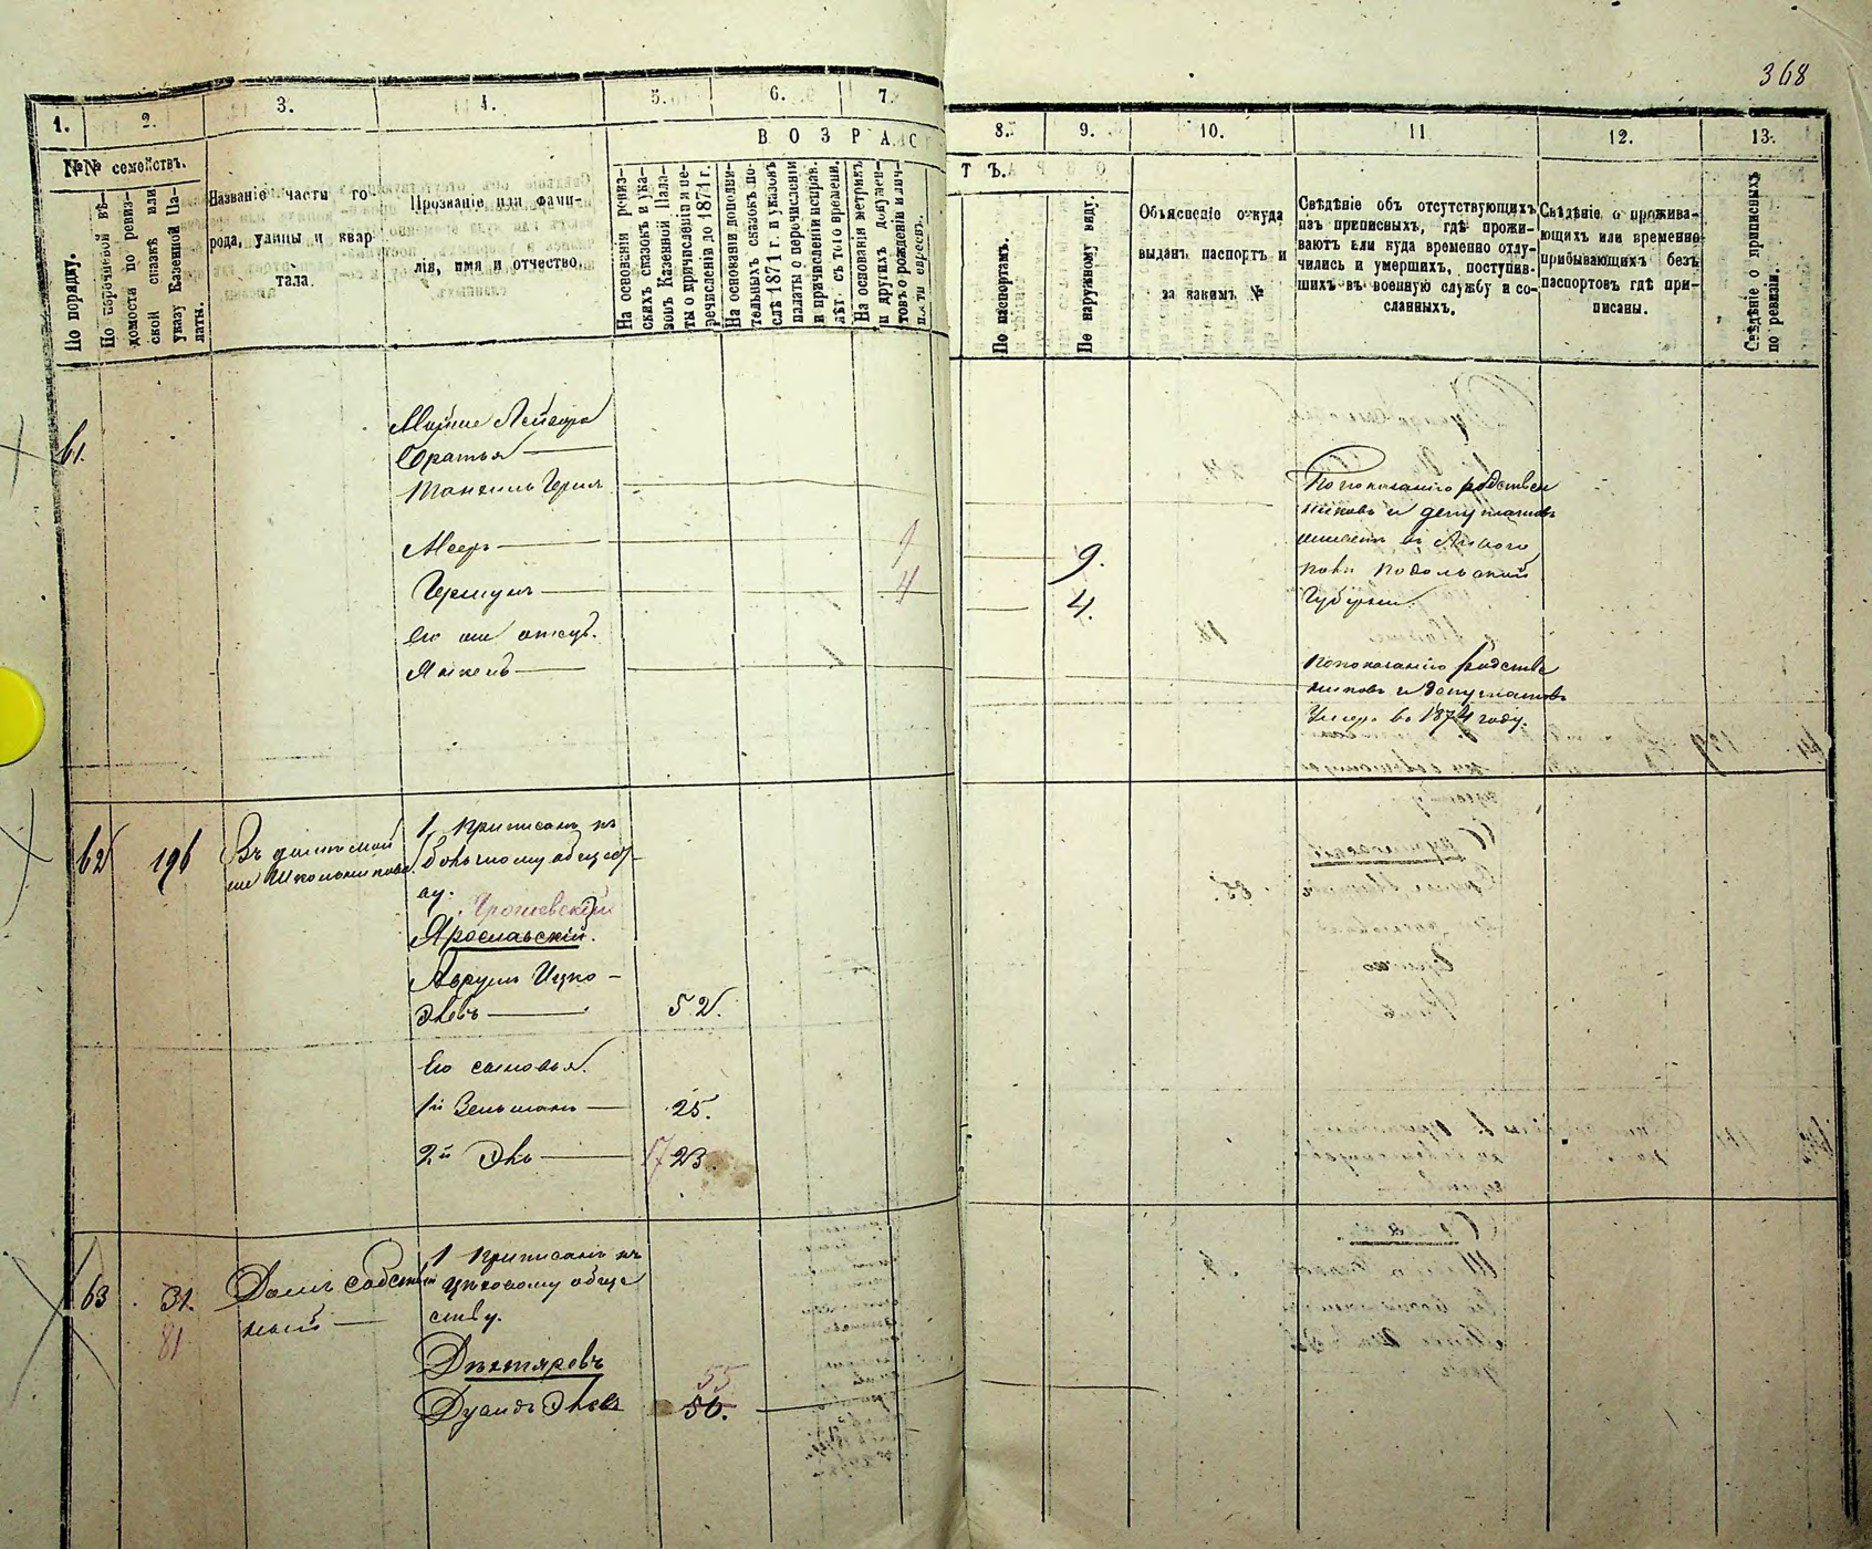 368
1.
2.
3.
4.
5.
6.
7.
8.
9.
10.
11
12.
13.
№№ семействъ.
По порядку.
По перечневой вѣ-
домости по ревиз-
ской сказкѣ или
указу Казенной Па-
латы.
Названіе части го-
рода, улицы и квар-
тала.
Прозваніе или фами-
лія, имя и отчество.
ВОЗРАСТЪ.
На основаніи ревиз-
скихъ сказокъ и ука-
зовъ Казенной Пала-
ты о причисленіи и пе-
речисленіи до 1874 г.
На основаніи дополни-
тельныхъ сказокъ по-
слѣ 1874 г. и указовъ
палаты о перечисленіи
и причисленіи исправ.
лѣт. съ того времени.
На основаніи метрикъ
и другихъ докумен-
товъ о рожденіи и лич-
ности евреевъ.
По паспортамъ.
По наружному виду.
Объясненіе откуда
выданъ паспортъ и
за какимъ №
Свѣдѣніе объ отсутствующихъ
изъ приписныхъ, гдѣ прожи-
ваютъ или куда временно отлу-
чились и умершихъ, поступив-
шихъ въ военную службу и со-
сланныхъ.
Свѣдѣніе о прожива-
ющихъ или временно
прибывающихъ безъ
паспортовъ гдѣ при-
писаны.
Свѣдѣніе о приписныхъ
по ревизіи.
61.
Братья
Герш
Мееръ
9
9.
Гершунъ
4
4.
Янкель
По показанію родствен
никовъ и депутатовъ
Подольской
Губерніи.
По показанію родстве
никовъ и депутатовъ
Умеръ въ 1874 году.
62
196
1 Приписанъ къ
большому общест-
ву.
Ярошевскій
Ярославскій.
Аврумъ Ицко-
Элевъ
52.
Его сыновья.
1й Зельманъ
25.
2й Эль
17 23.
63
31.
81
Домъ собствен
ный
1 Приписанъ къ
цеховому обще
ству.
Дехтяревъ
55
Дувидъ Элевъ
56.